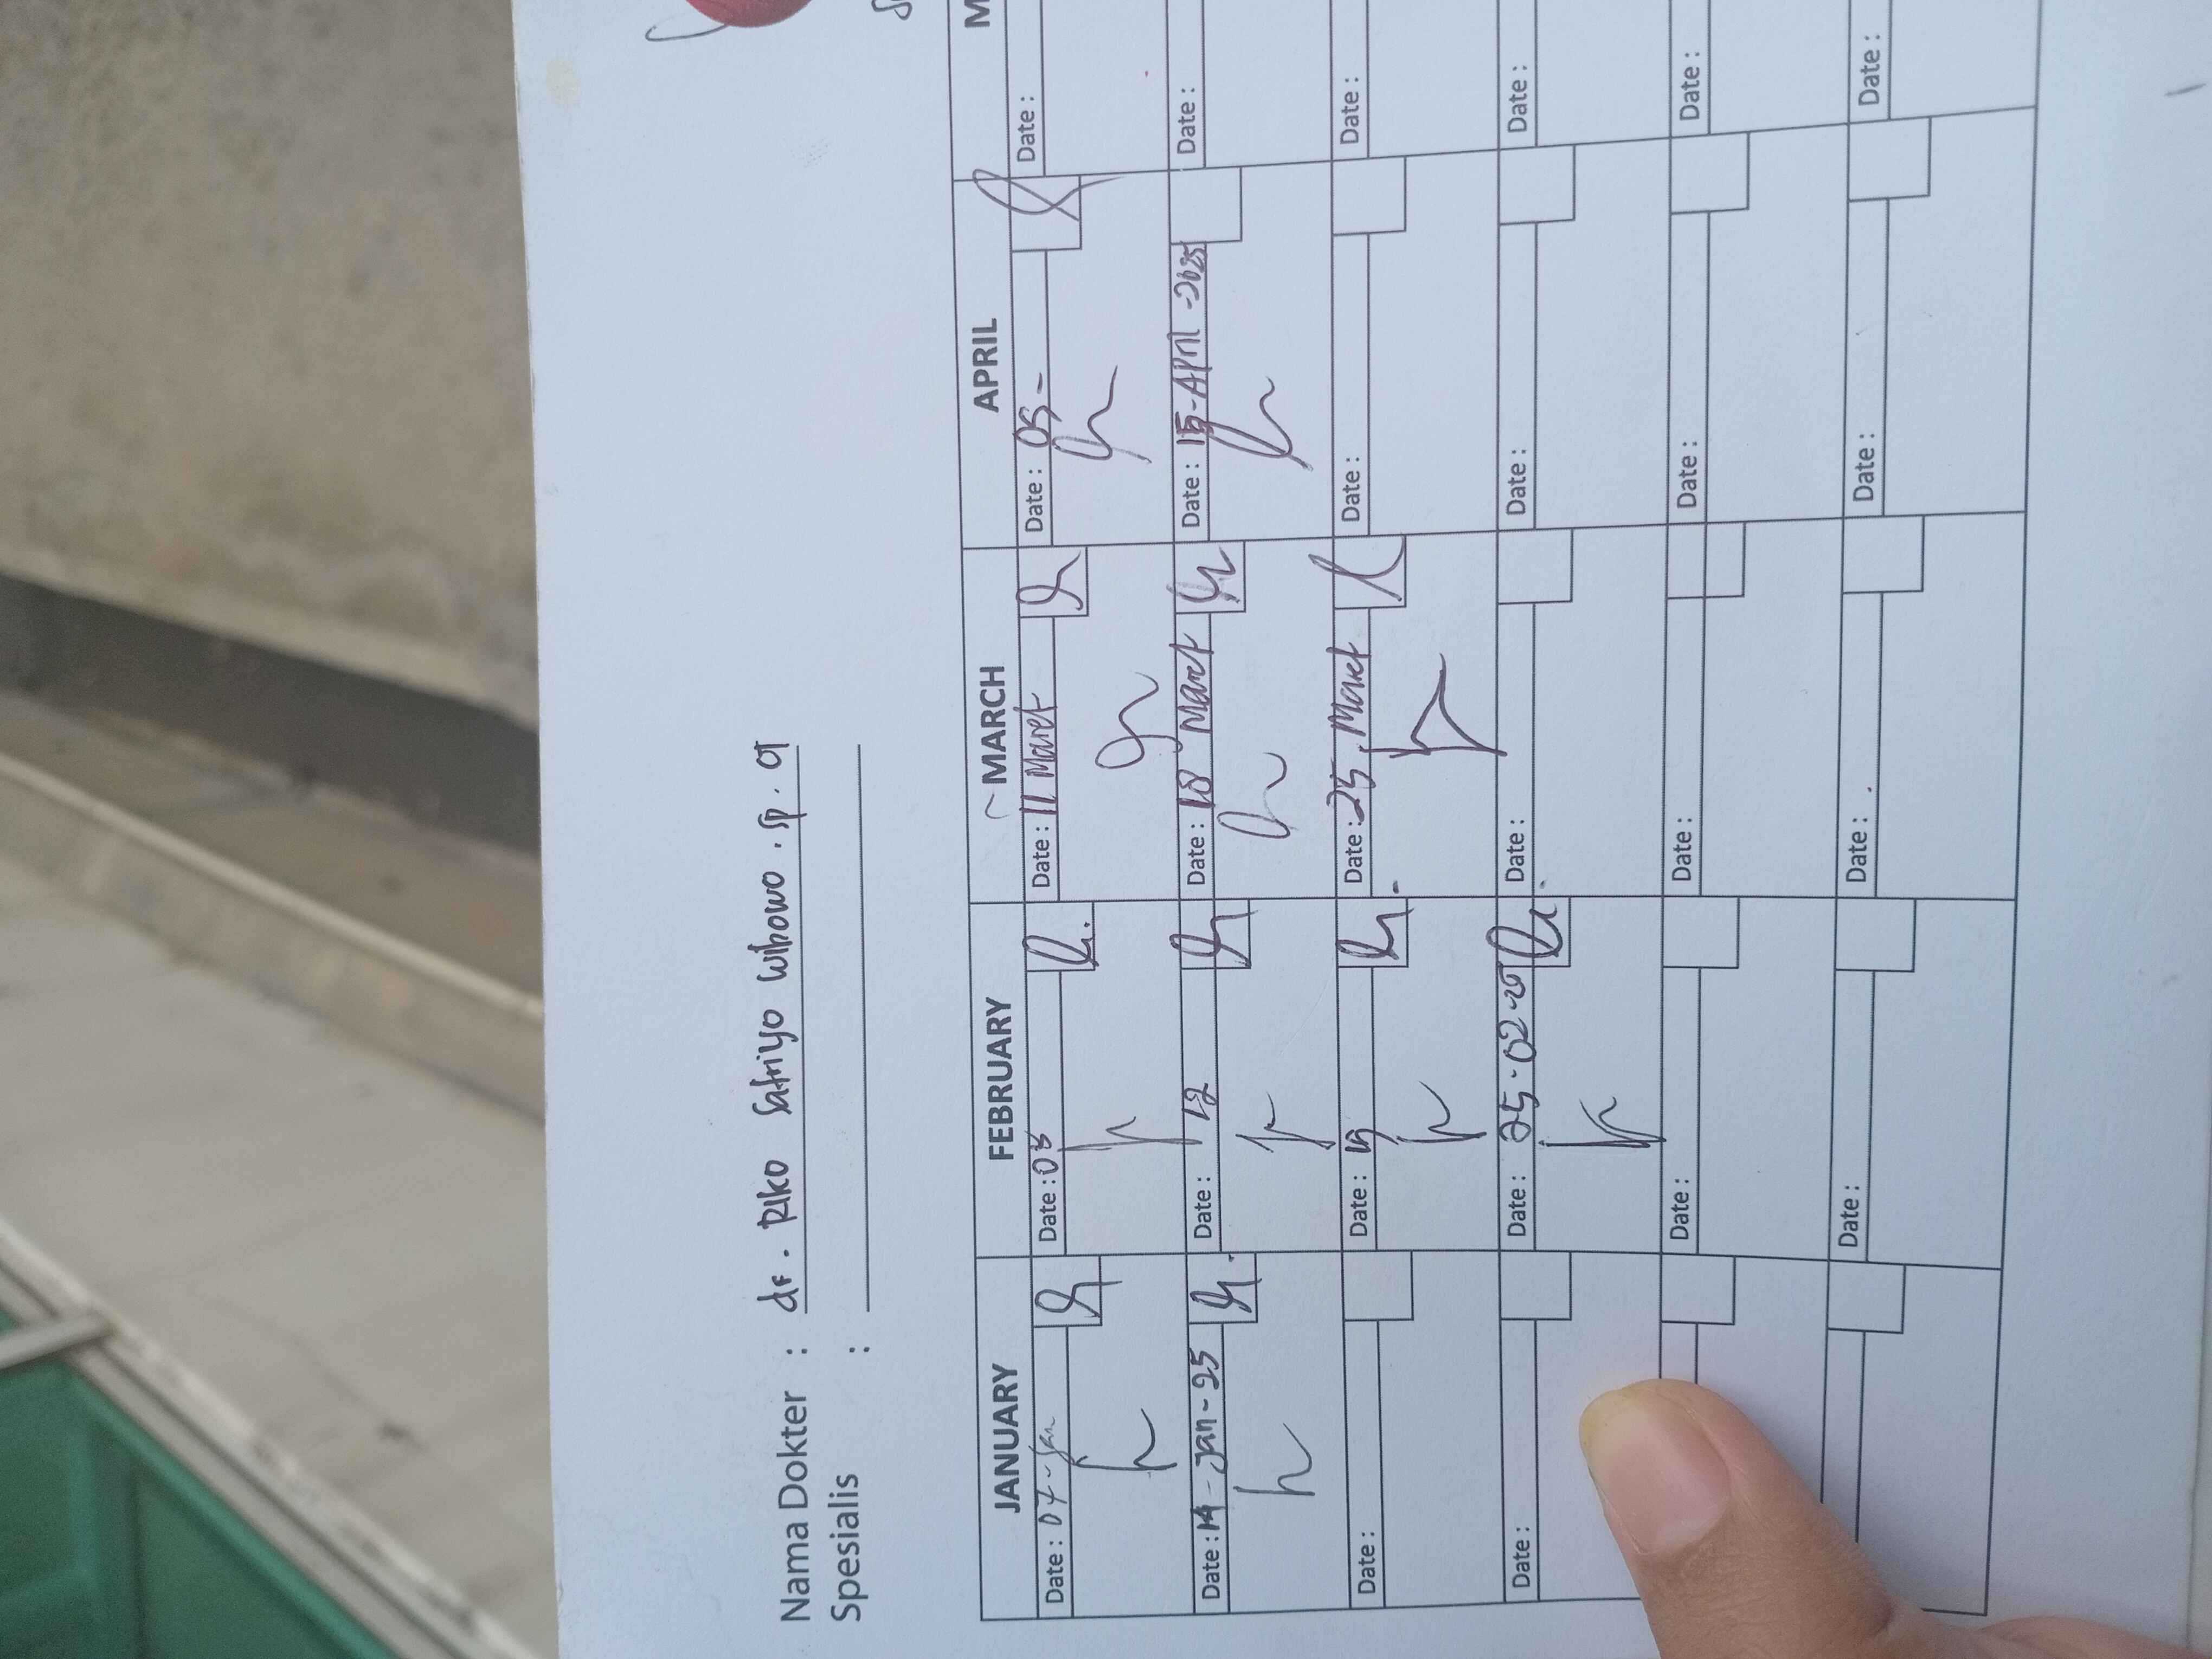 Nama Dokter : dr. Riko Satriyo wibowo . sp. OT
Spesialis :
JANUARY FEBRUARY MARCH APRIL M
Date : 07-Jan Date : 03 Date : 11 Maret Date : 05- Date :
Date : 14-Jan-25 Date : 12 Date : 18 Maret Date : 15-April-2025 Date :
Date : Date : 19 Date : 25 Maret Date : Date :
Date : Date : 25-02-25 Date : Date : Date :
Date : Date : Date : Date :
Date : Date : Date : Date :